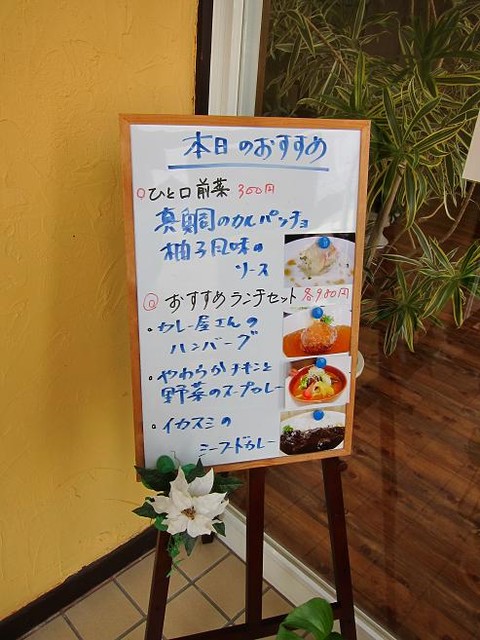 本日のおすすめ
○ひと口前菜 300円
真鯛のカルパッチョ
柚子風味の
ソース
◎おすすめランチセット 各980円
・カレー屋さんの
ハンバーグ
・やわらかチキンと
野菜のスープカレー
・イカスミの
シーフードカレー